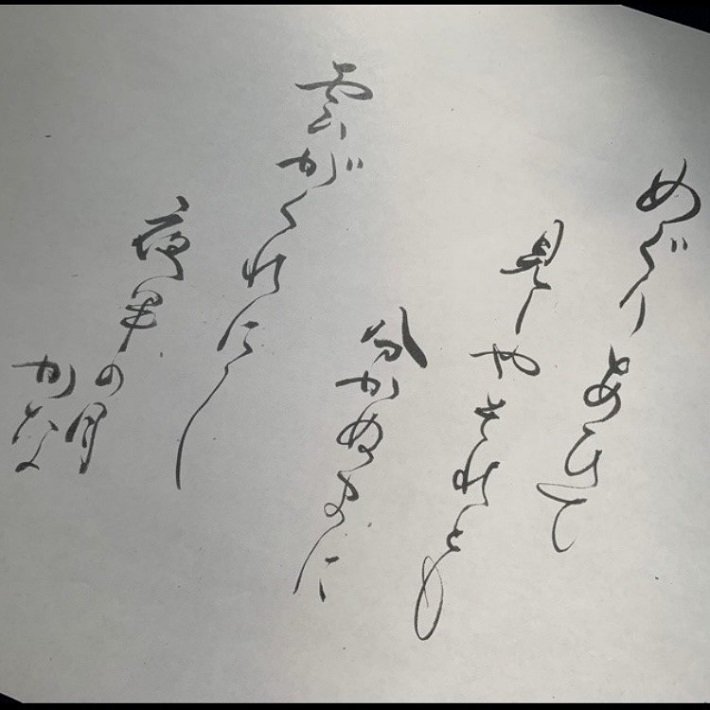 めぐりあひて
見しやそれとも
分かぬまに
雲がくれにし
夜半の月
かな